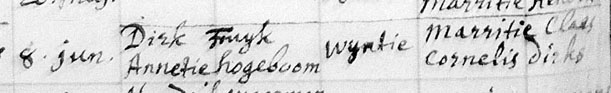 Dirk Fruyk Marritie Claas
8. jun. Wyntie
Annetie hogeboom Cornelis dirks